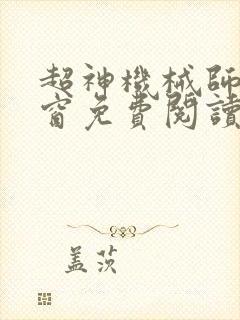 超神機械師
窗免費閱讀
蓋茨